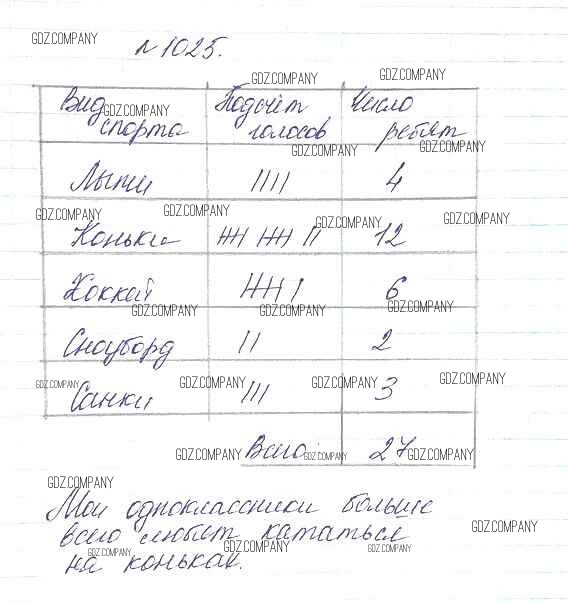 GDZ.COMPANY
№ 1025.
GDZ.COMPANY GDZ.COMPANY
Вид Подсчёт Число
GDZ.COMPANY
спорта голосов ребят
GDZ.COMPANY GDZ.COMPANY
Лыжи |||| 4
GDZ.COMPANY GDZ.COMPANY GDZ.COMPANY GDZ.COMPANY
Коньки |||| |||| || 12
Хоккей |||| | 6
GDZ.COMPANY GDZ.COMPANY GDZ.COMPANY
Сноуборд || 2
GDZ.COMPANY GDZ.COMPANY GDZ.COMPANY GDZ.COMPANY
Санки ||| 3
Всего 27
GDZ.COMPANY GDZ.COMPANY GDZ.COMPANY
GDZ.COMPANY
Мои одноклассники больше
всего любят кататься
GDZ.COMPANY
на коньках.
GDZ.COMPANY GDZ.COMPANY GDZ.COMPANY